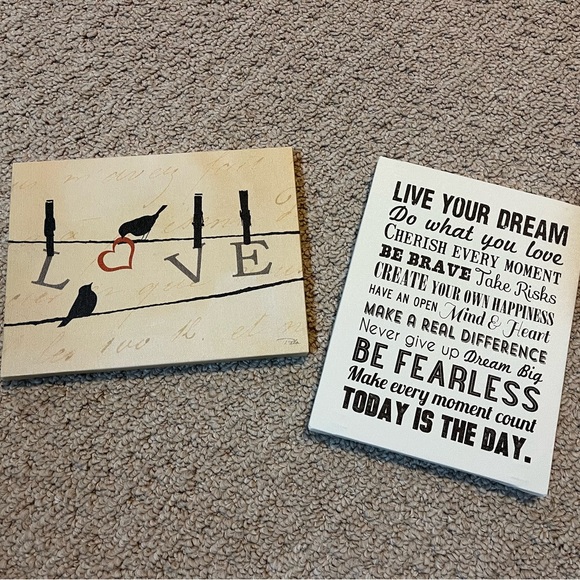 L VE
LIVE YOUR DREAM
Do what you love
CHERISH EVERY MOMENT
BE BRAVE Take Risks
CREATE YOUR OWN HAPPINESS
HAVE AN OPEN Mind & Heart
MAKE A REAL DIFFERENCE
Never give up Dream Big
BE FEARLESS
Make every moment count
TODAY IS THE DAY.